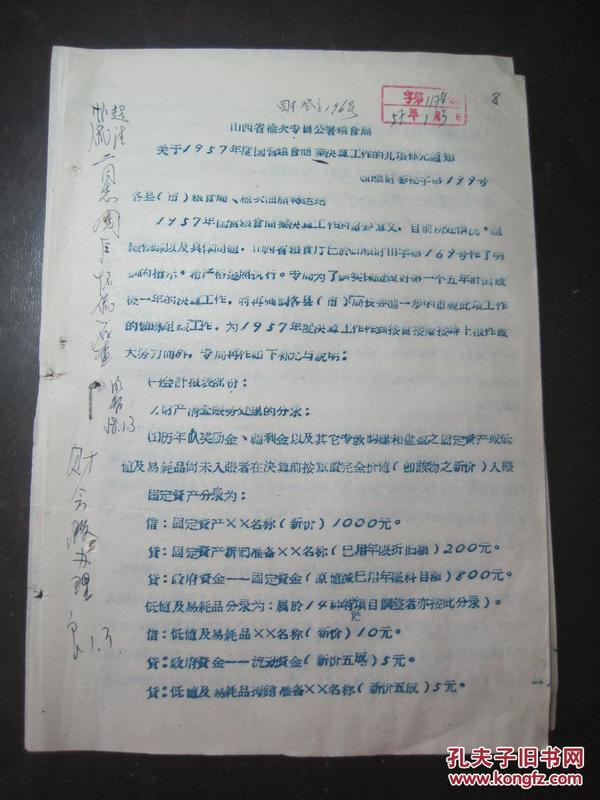 8
字第1178
57年1月3日
山西省榆次专員公署粮食局
关于1957年度国营粮食商業决算工作的几項补充通知
字第199号
各县（市）粮食局、榆次油脂轉运站
1957年国营粮食商業决算工作的重要意义，目前所处情况，組
以及具体問題，山西省粮食厅已於財由字第169号作了明
确的指示，希严格遵照执行。专局为了切实保証做好第一个五年計划最
後一年的决算工作，将再强調各县（市）局长要进一步的重視此項工作
的領導組織工作，为1957年度决算工作作到按質按量按時上报作最
大努力而外，专局再作如下补充与說明：
(一)会計报表部份：
1.財产清查賬务处理的分录：
(1)历年以奖励金、福利金以及其它专款購建和盘盈之固定資产或低
值及易耗品尚未入賬者在决算前按重置完全价值（即該物之新价）入賬
固定資产分录为：
借：固定資产××名称（新价）1000元。
貸：固定資产折旧准备××名称（已用年限折旧額）200元。
貸：政府資金——固定資金（原值减已用年限科目額）800元。
低值及易耗品分录为：屬於14种特定項目調整者亦按此分录）。
借：低值及易耗品××名称（新价）10元。
貸：政府資金——流动資金（新价五成）5元。
貸：低值及易耗品摊銷准备××名称（新价五成）5元。
財会股办理
1.3.
孔夫子旧书网
www.kongfz.com